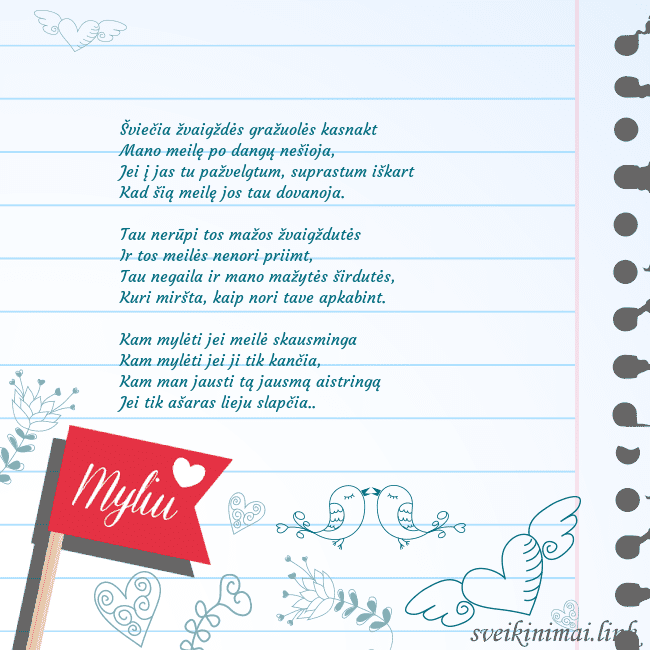 Šviečia žvaigždės gražuolės kasnakt
Mano meilę po dangų nešioja,
Jei į jas tu pažvelgtum, suprastum iškart
Kad šią meilę jos tau dovanoja.
Tau nerūpi tos mažos žvaigždutės
Ir tos meilės nenori priimt,
Tau negaila ir mano mažytės širdutės,
Kuri miršta, kaip nori tave apkabint.
Kam mylėti jei meilė skausminga
Kam mylėti jei ji tik kančia,
Kam man jausti tą jausmą aistringą
Jei tik ašaras lieju slapčia..
Myliu
sveikinimai.link